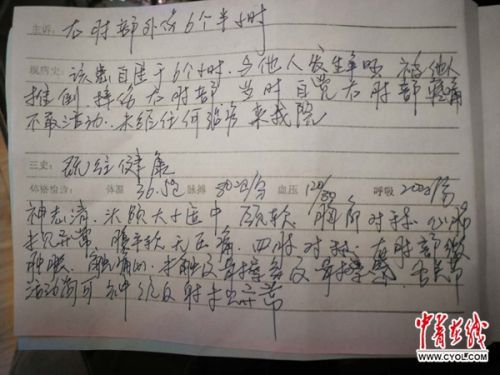 主诉: 右肘部外伤6个半小时
现病史: 该患自述于6个小时,与他人发生争吵 被他人
推倒,摔伤右肘部 当时自觉右肘部疼痛
不敢活动.未经任何治疗来我院
三史: 既往健康
体格检查: 体温 36.5℃ 脉搏 80次/分 血压 120/80 呼吸 20次/分
神志清.头颅大小正中 颈软 胸部对称.心肺
未见异常.腹平软 无压痛.四肢对称.右肘部
肿胀.触痛 未触及骨擦 及骨擦
活动 可 神经反射 异常
中青在线
WWW.CYOL.COM